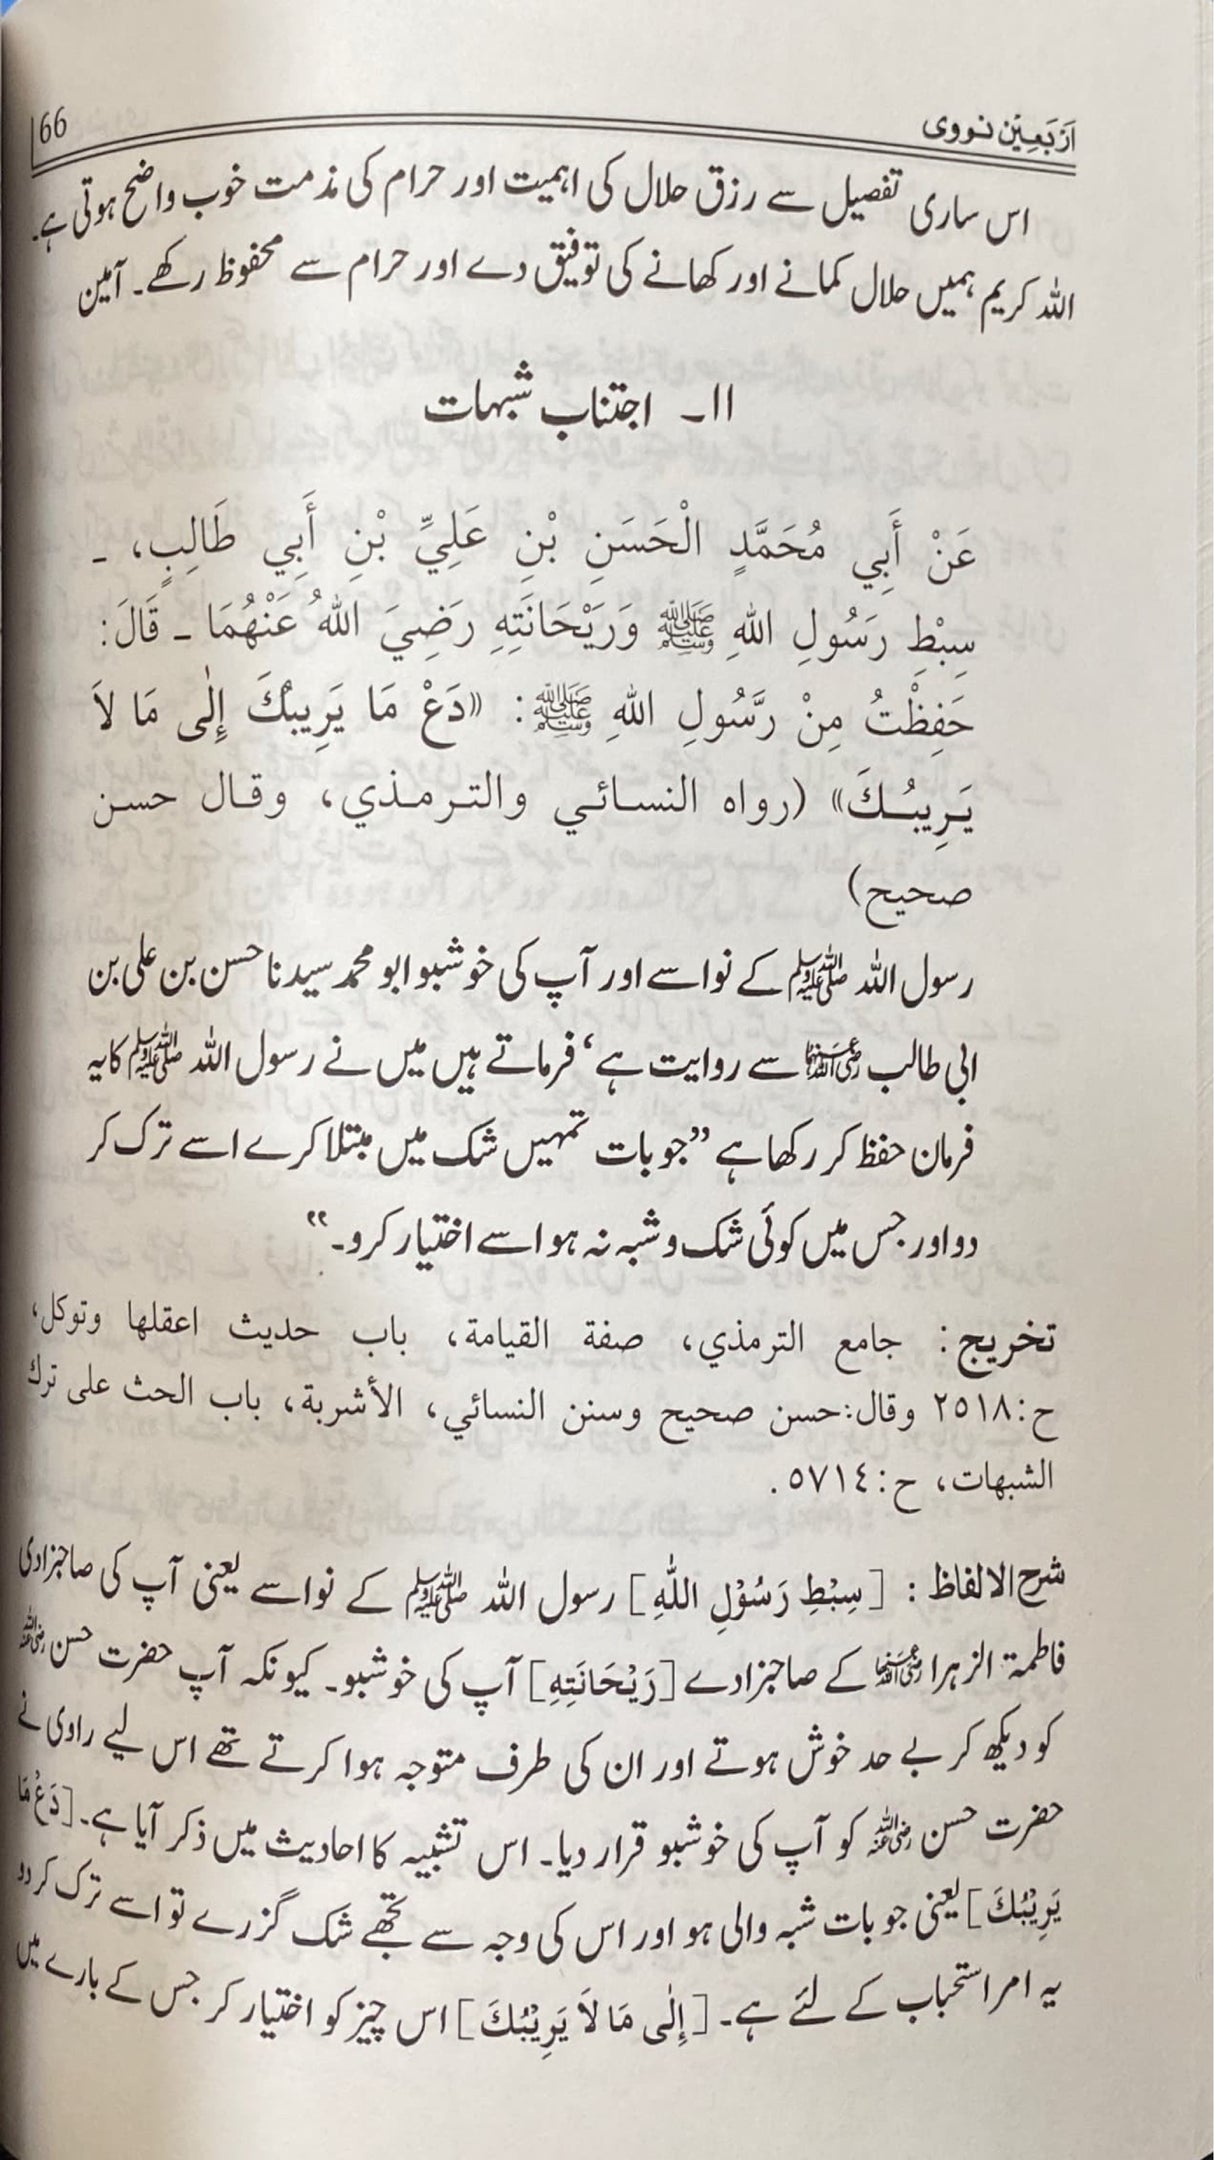 اَرْبَعِیْن نووی
66
اس ساری تفصیل سے رزق حلال کی اہمیت اور حرام کی مذمت خوب واضح ہوتی ہے۔
اللہ کریم ہمیں حلال کمانے اور کھانے کی توفیق دے اور حرام سے محفوظ رکھے۔ آمین
۱۱۔ اجتناب شبہات
عَنْ أَبِي مُحَمَّدٍ الْحَسَنِ بْنِ عَلِيِّ بْنِ أَبِي طَالِبٍ، ـ
سِبْطِ رَسُولِ اللهِ ﷺ وَرَيْحَانَتِهِ رَضِيَ اللهُ عَنْهُمَا ـ قَالَ:
حَفِظْتُ مِنْ رَّسُولِ اللهِ ﷺ: «دَعْ مَا يَرِيبُكَ إِلٰى مَا لاَ
يَرِيبُكَ» (رواه النسائي والترمذي، وقال حسن
صحيح)
رسول اللہ ﷺ کے نواسے اور آپ کی خوشبو ابو محمد سیدنا حسن بن علی بن
ابی طالب رضی اللہ عنہما سے روایت ہے‘ فرماتے ہیں میں نے رسول اللہ ﷺ کا یہ
فرمان حفظ کر رکھا ہے ”جو بات تمہیں شک میں مبتلا کرے اسے ترک کر
دو اور جس میں کوئی شک و شبہ نہ ہو اسے اختیار کرو۔“
تخريج: جامع الترمذي، صفة القيامة، باب حديث اعقلها وتوكل،
ح:٢٥١٨ وقال:حسن صحيح وسنن النسائي، الأشربة، باب الحث على ترك
الشبهات، ح:٥٧١٤.
شرح الالفاظ : [سِبْطِ رَسُوْلِ اللّٰهِ] رسول اللہ ﷺ کے نواسے یعنی آپ کی صاحبزادی
فاطمۃ الزہرا رضی اللہ عنہا کے صاحبزادے [رَيْحَانَتِهِ] آپ کی خوشبو۔ کیونکہ آپ حضرت حسن رضی اللہ عنہ
کو دیکھ کر بے حد خوش ہوتے اور ان کی طرف متوجہ ہوا کرتے تھے اس لیے راوی نے
حضرت حسن رضی اللہ عنہ کو آپ کی خوشبو قرار دیا۔ اس تشبیہ کا احادیث میں ذکر آیا ہے۔ [دَعْ مَا
يَرِيْبُكَ] یعنی جو بات شبہ والی ہو اور اس کی وجہ سے تجھے شک گزرے تو اسے ترک کر دو
یہ امر استحباب کے لئے ہے۔ [إِلٰى مَا لاَ يَرِيْبُكَ] اس چیز کو اختیار کر جس کے بارے میں